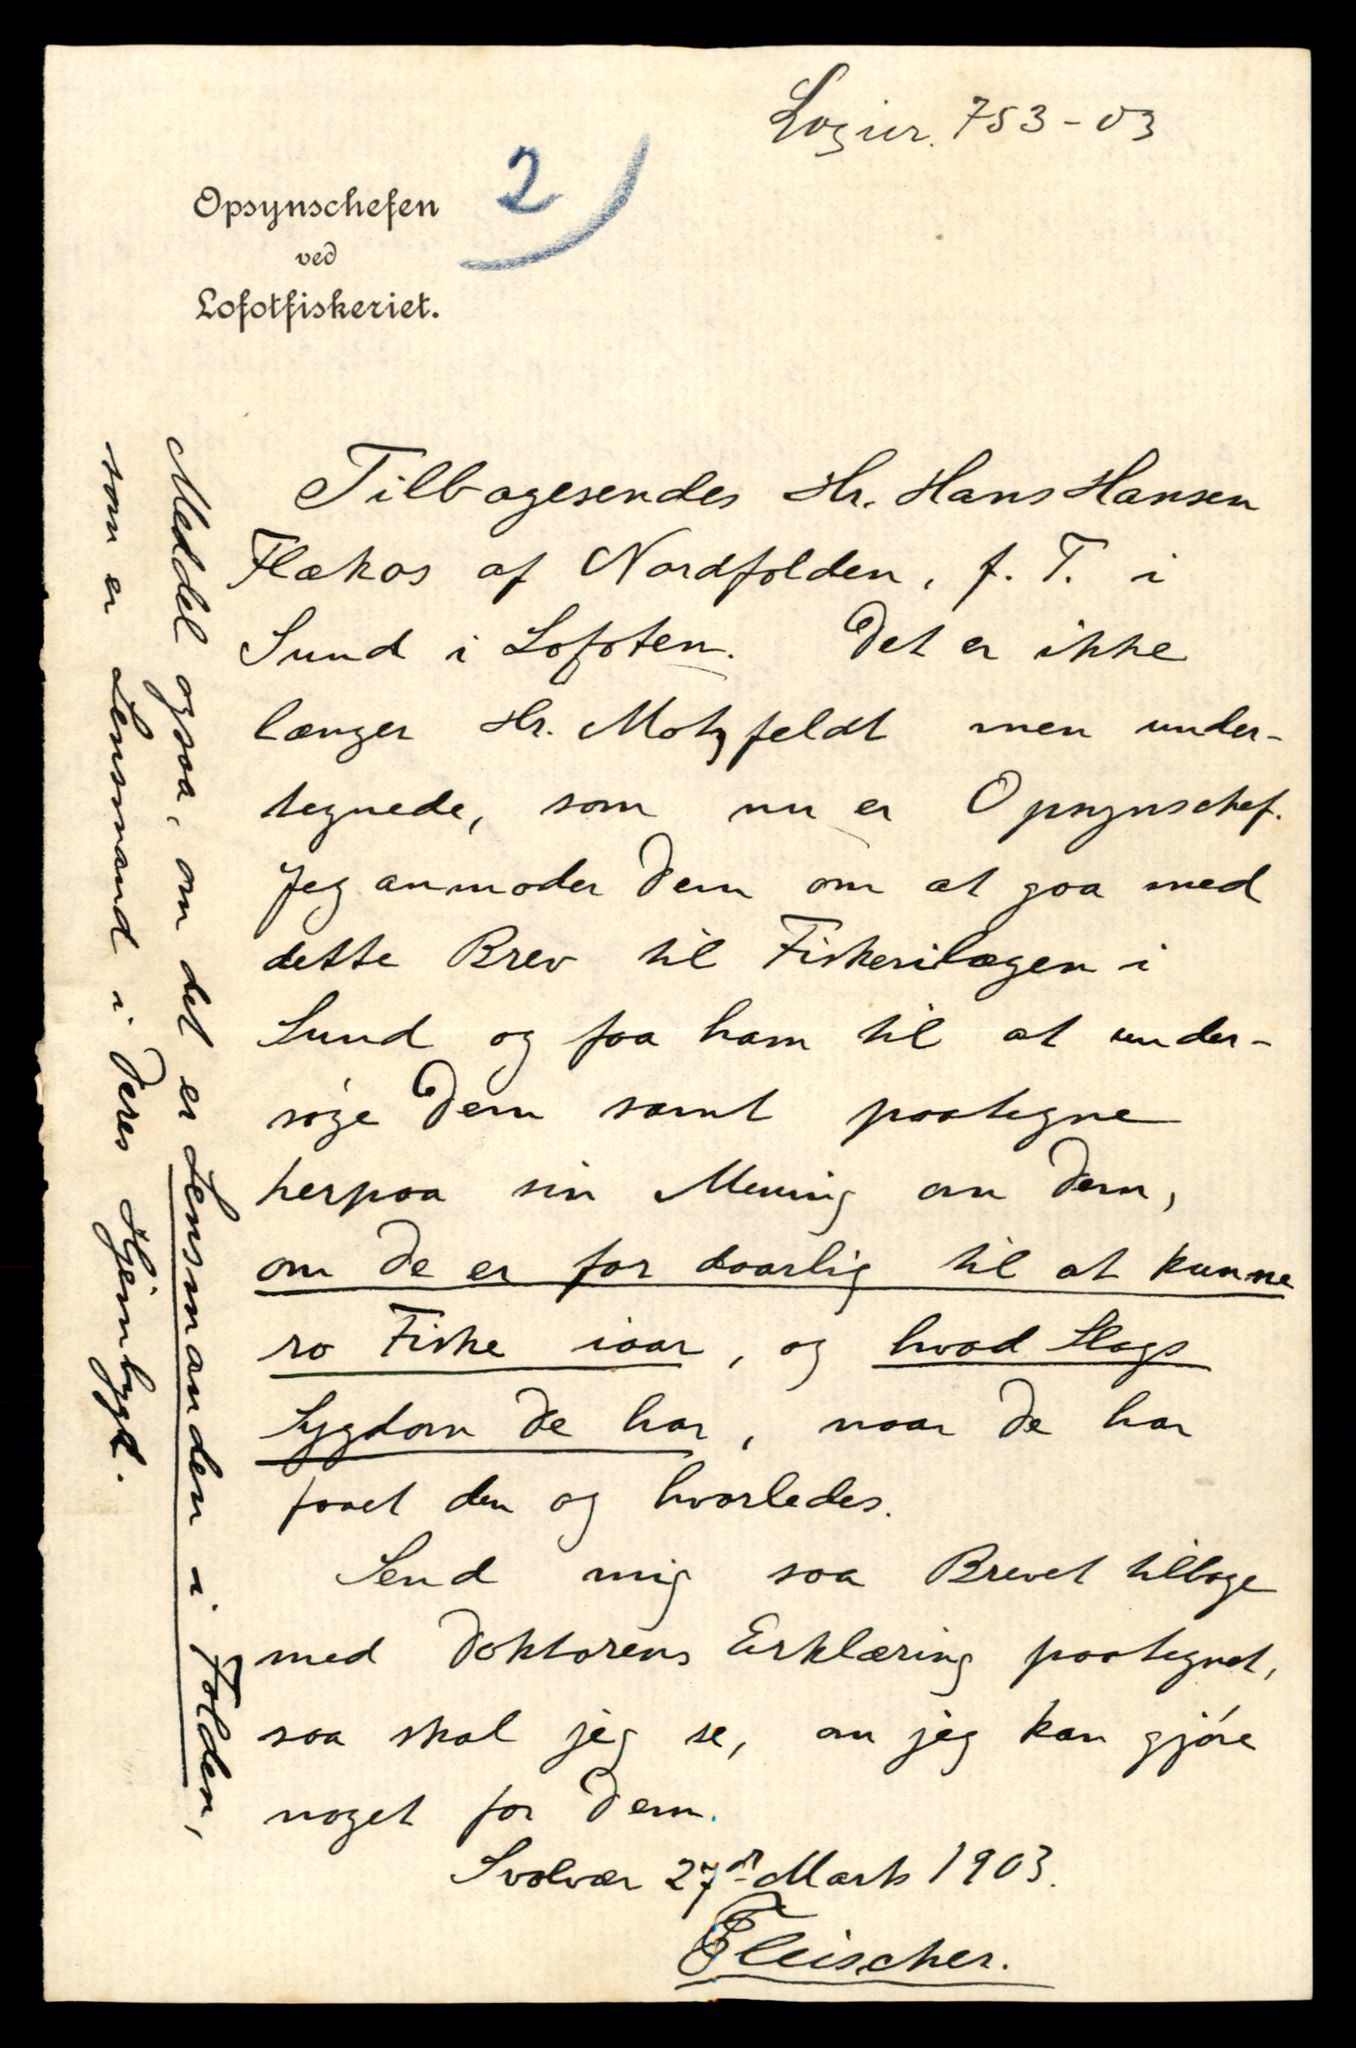 753-03
2
Opsynschefen
ved
Lofotfiskeriet.
Tilbagesendes Hr. Hans Hansen
Flækos af Nordfolden, f. T. i
Sund i Lofoten. Det er ikke
længer Hr. Motzfeldt men under-
tegnede, som nu er Opsynschef.
Jeg anmoder Dem om at gaa med
dette Brev til Fiskerilægen i
Sund og faa ham til at under-
søge Dem samt paategne
herpaa sin Mening om Dem,
om De er for daarlig til at kunne
ro Fiske iaar, og hvad Slags
Sygdom De har, naar De har
faaet den og hvorledes.
Send mig saa Brevet tilbage
med Doktorens Erklæring paategnet,
saa skal jeg se, om jeg kan gjøre
noget for Dem.
Svolvær 27de Marts 1903.
Fleischer.
Meddel ogsaa, om det er Lensmanden i Folden,
som er Lensmand i Deres Hjembygd.